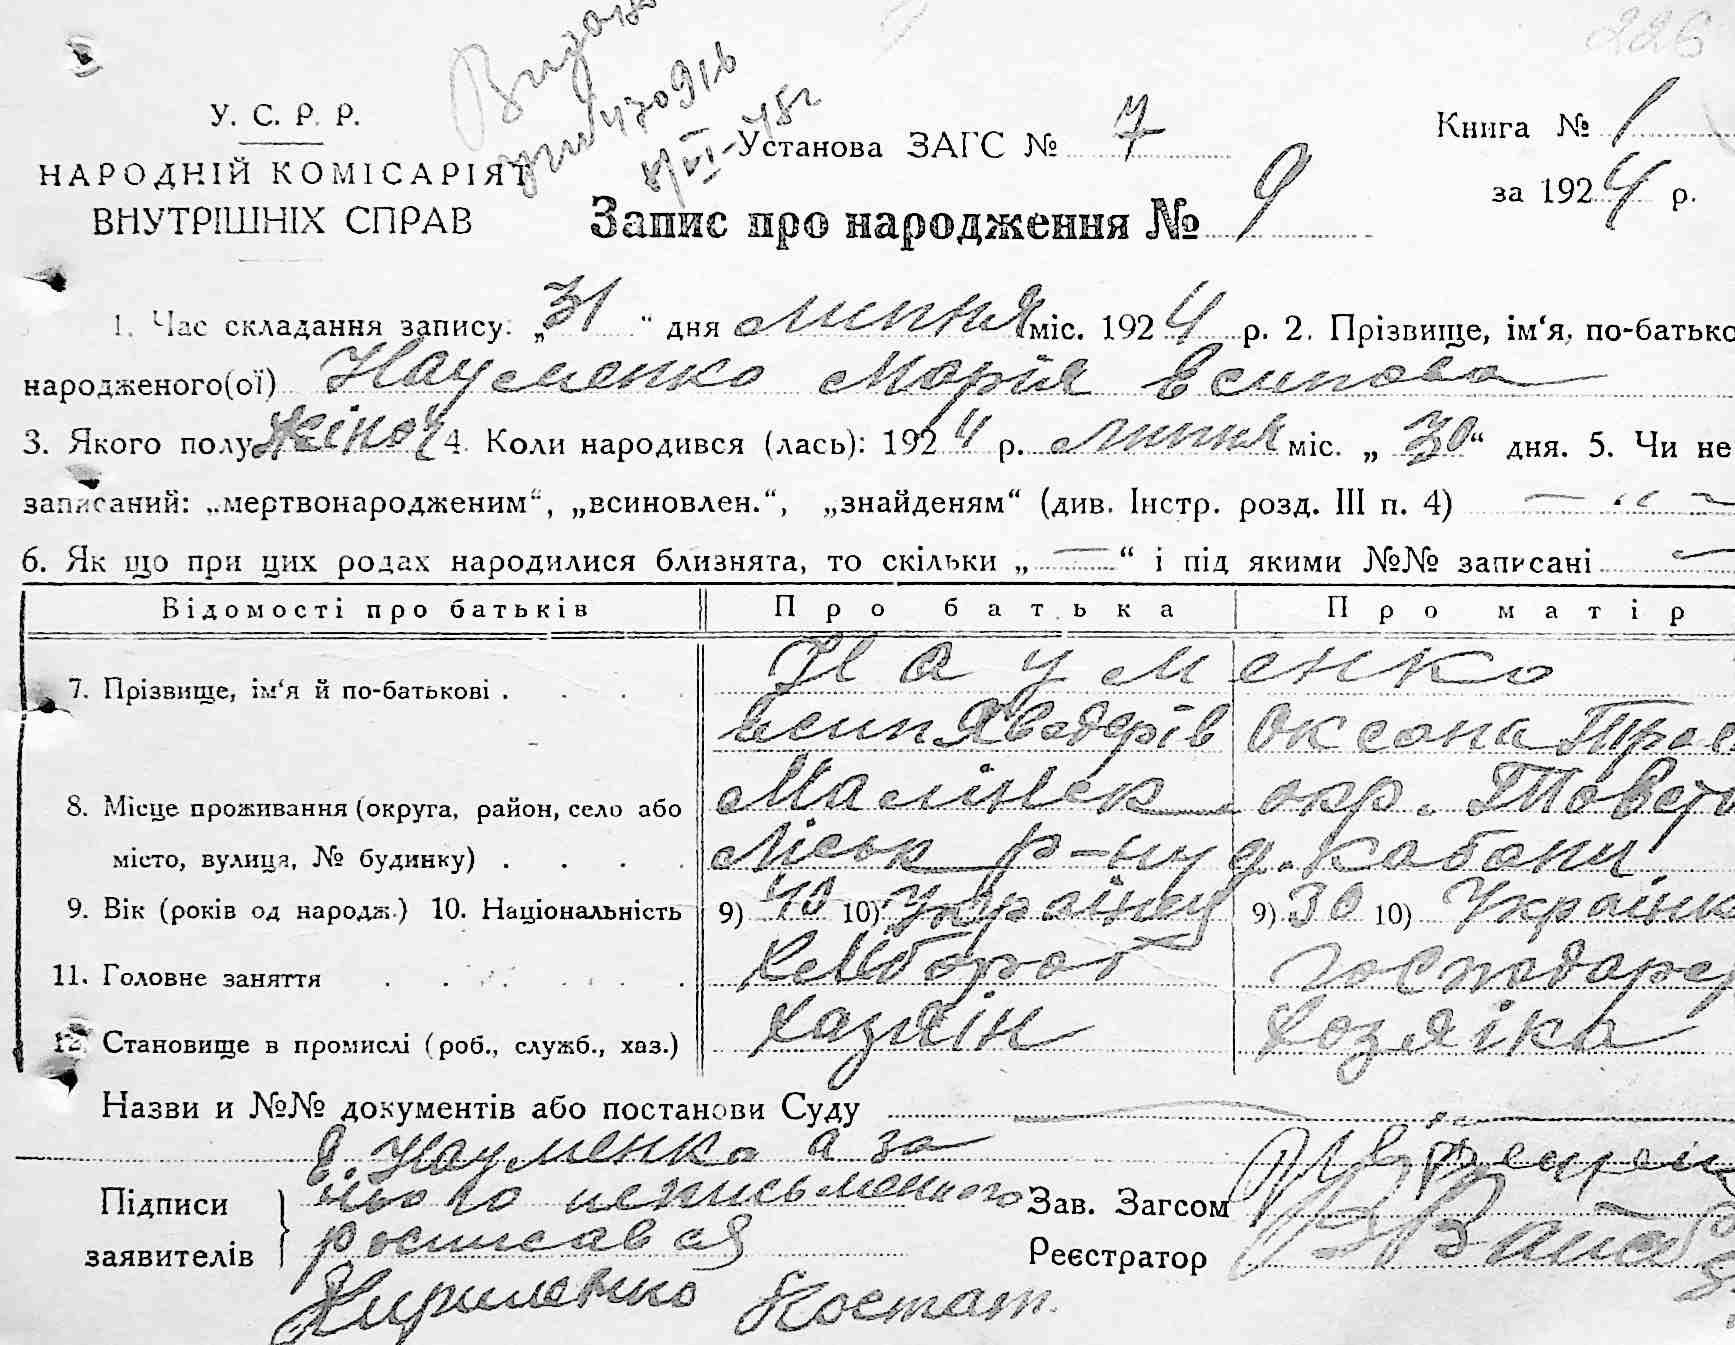 226
У. С. Р. Р.
НАРОДНІЙ КОМІСАРІЯТ
ВНУТРІШНІХ СПРАВ
Установа ЗАГС № 7
Книга № 1
за 1924 р.
Запис про народження № 9
1. Час складання запису: „31“ дня липня міс. 1924 р. 2. Прізвище, ім‘я, по-батько
народженого(ої) Науменко Марія Есипова
3. Якого полу жіноч 4. Коли народився (лась): 1924 р. липня міс. „30“ дня. 5. Чи не
записаний: „мертвонародженим“, „всиновлен.“, „знайденям“ (див. Інстр. розд. III п. 4) — „ —
6. Як що при цих родах народилися близнята, то скільки „—“ і під якими №№ записані —
Відомості про батьків Про батька Про матір
7. Прізвище, ім‘я й по-батькові . . . . Науменко
Оксана
8. Місце проживання (округа, район, село або
місто, вулиця, № будинку) . . . .
окр.
р-ну д. Кабани
9. Вік (років од народж.) 10. Національність 9) 40 10) Українец 9) 30 10) Українка
11. Головне заняття Хлібороб Господарс
12. Становище в промислі (роб., служб., хаз.) Хазяїн Хозяїка
Назви и №№ документів або постанови Суду —
Е. Науменко а за
нього неписьменного
росписався
Кириленко Костат.
Підписи
заявителів
Зав. Загсом
Реєстратор